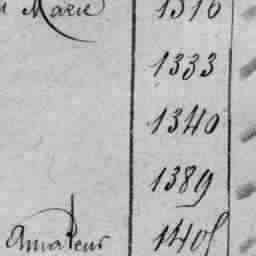 Marie 1310
1333
1340
1389
Amateur 1405